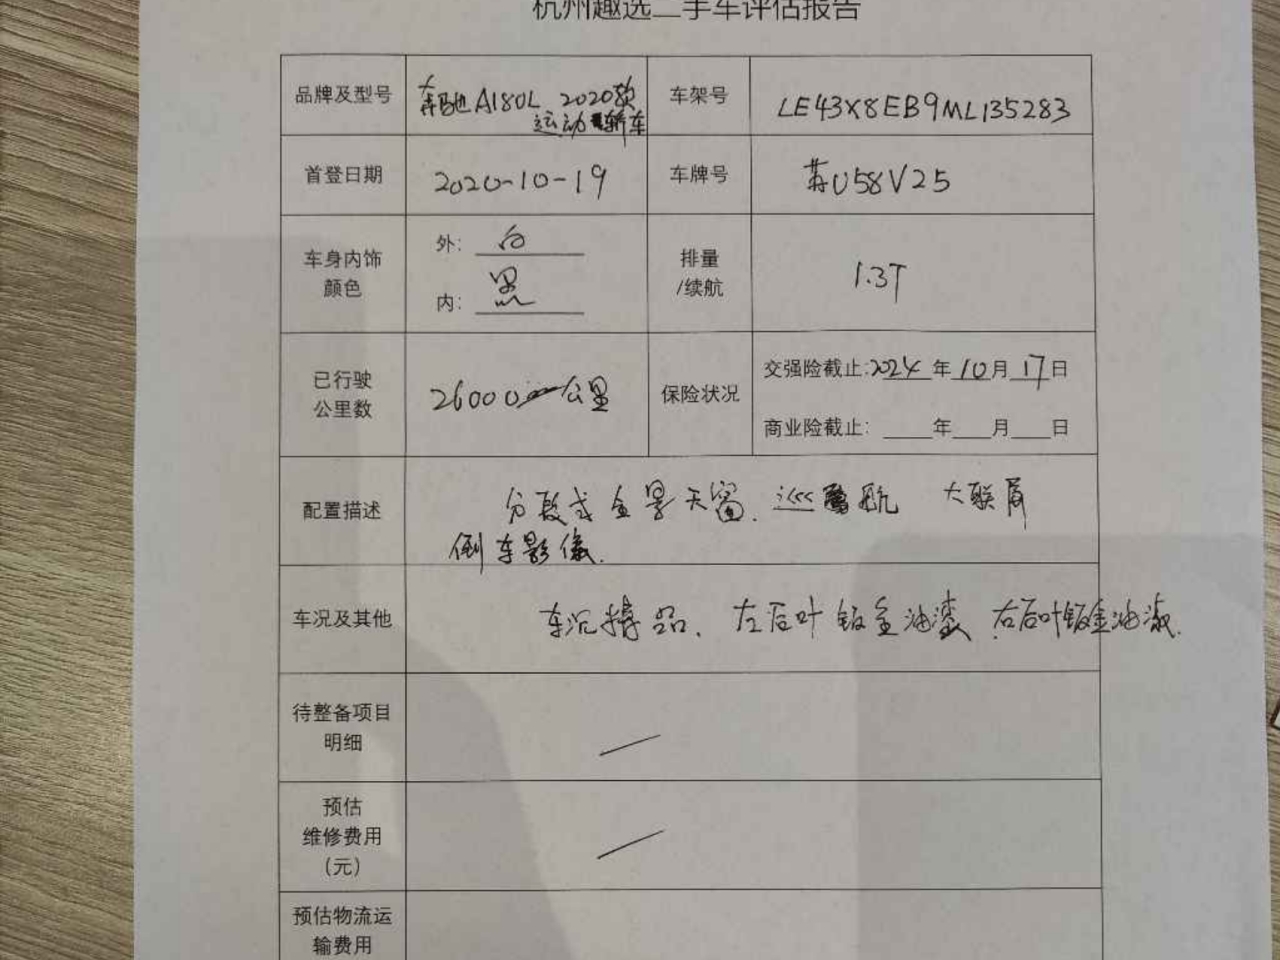 杭州趣选二手车评估报告
品牌及型号 奔驰A180L 2020款 车架号 LE43X8EB9ML135283
运动轿车
首登日期 2020-10-19 车牌号 苏U58V25
车身内饰 外: 白 排量
颜色 内: 黑 /续航 1.3T
已行驶 26000公里 保险状况 交强险截止:2024年10月17日
公里数 商业险截止: ____年___月___日
配置描述 分段式全景天窗、巡航 大联屏
倒车影像.
车况及其他 车况精品、左后叶钣金油漆、右后叶钣金油漆.
待整备项目
明细 /
预估
维修费用 /
(元)
预估物流运
输费用